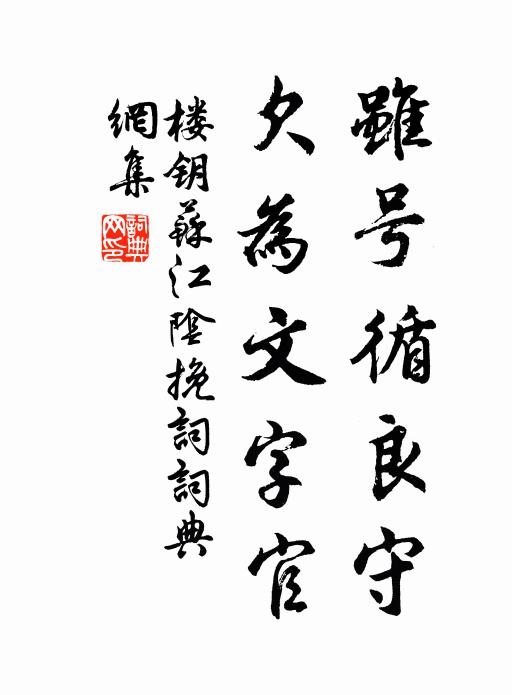 雖号循良守
久為文字官
楼钥蘇江陰挽詞詞典
網集
詞典网印